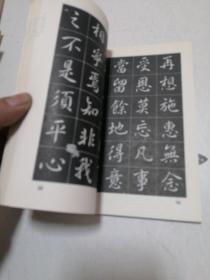 相爭焉知非我
之不是須平心
再想施惠無念
受恩莫忘凡事
當留餘地得意